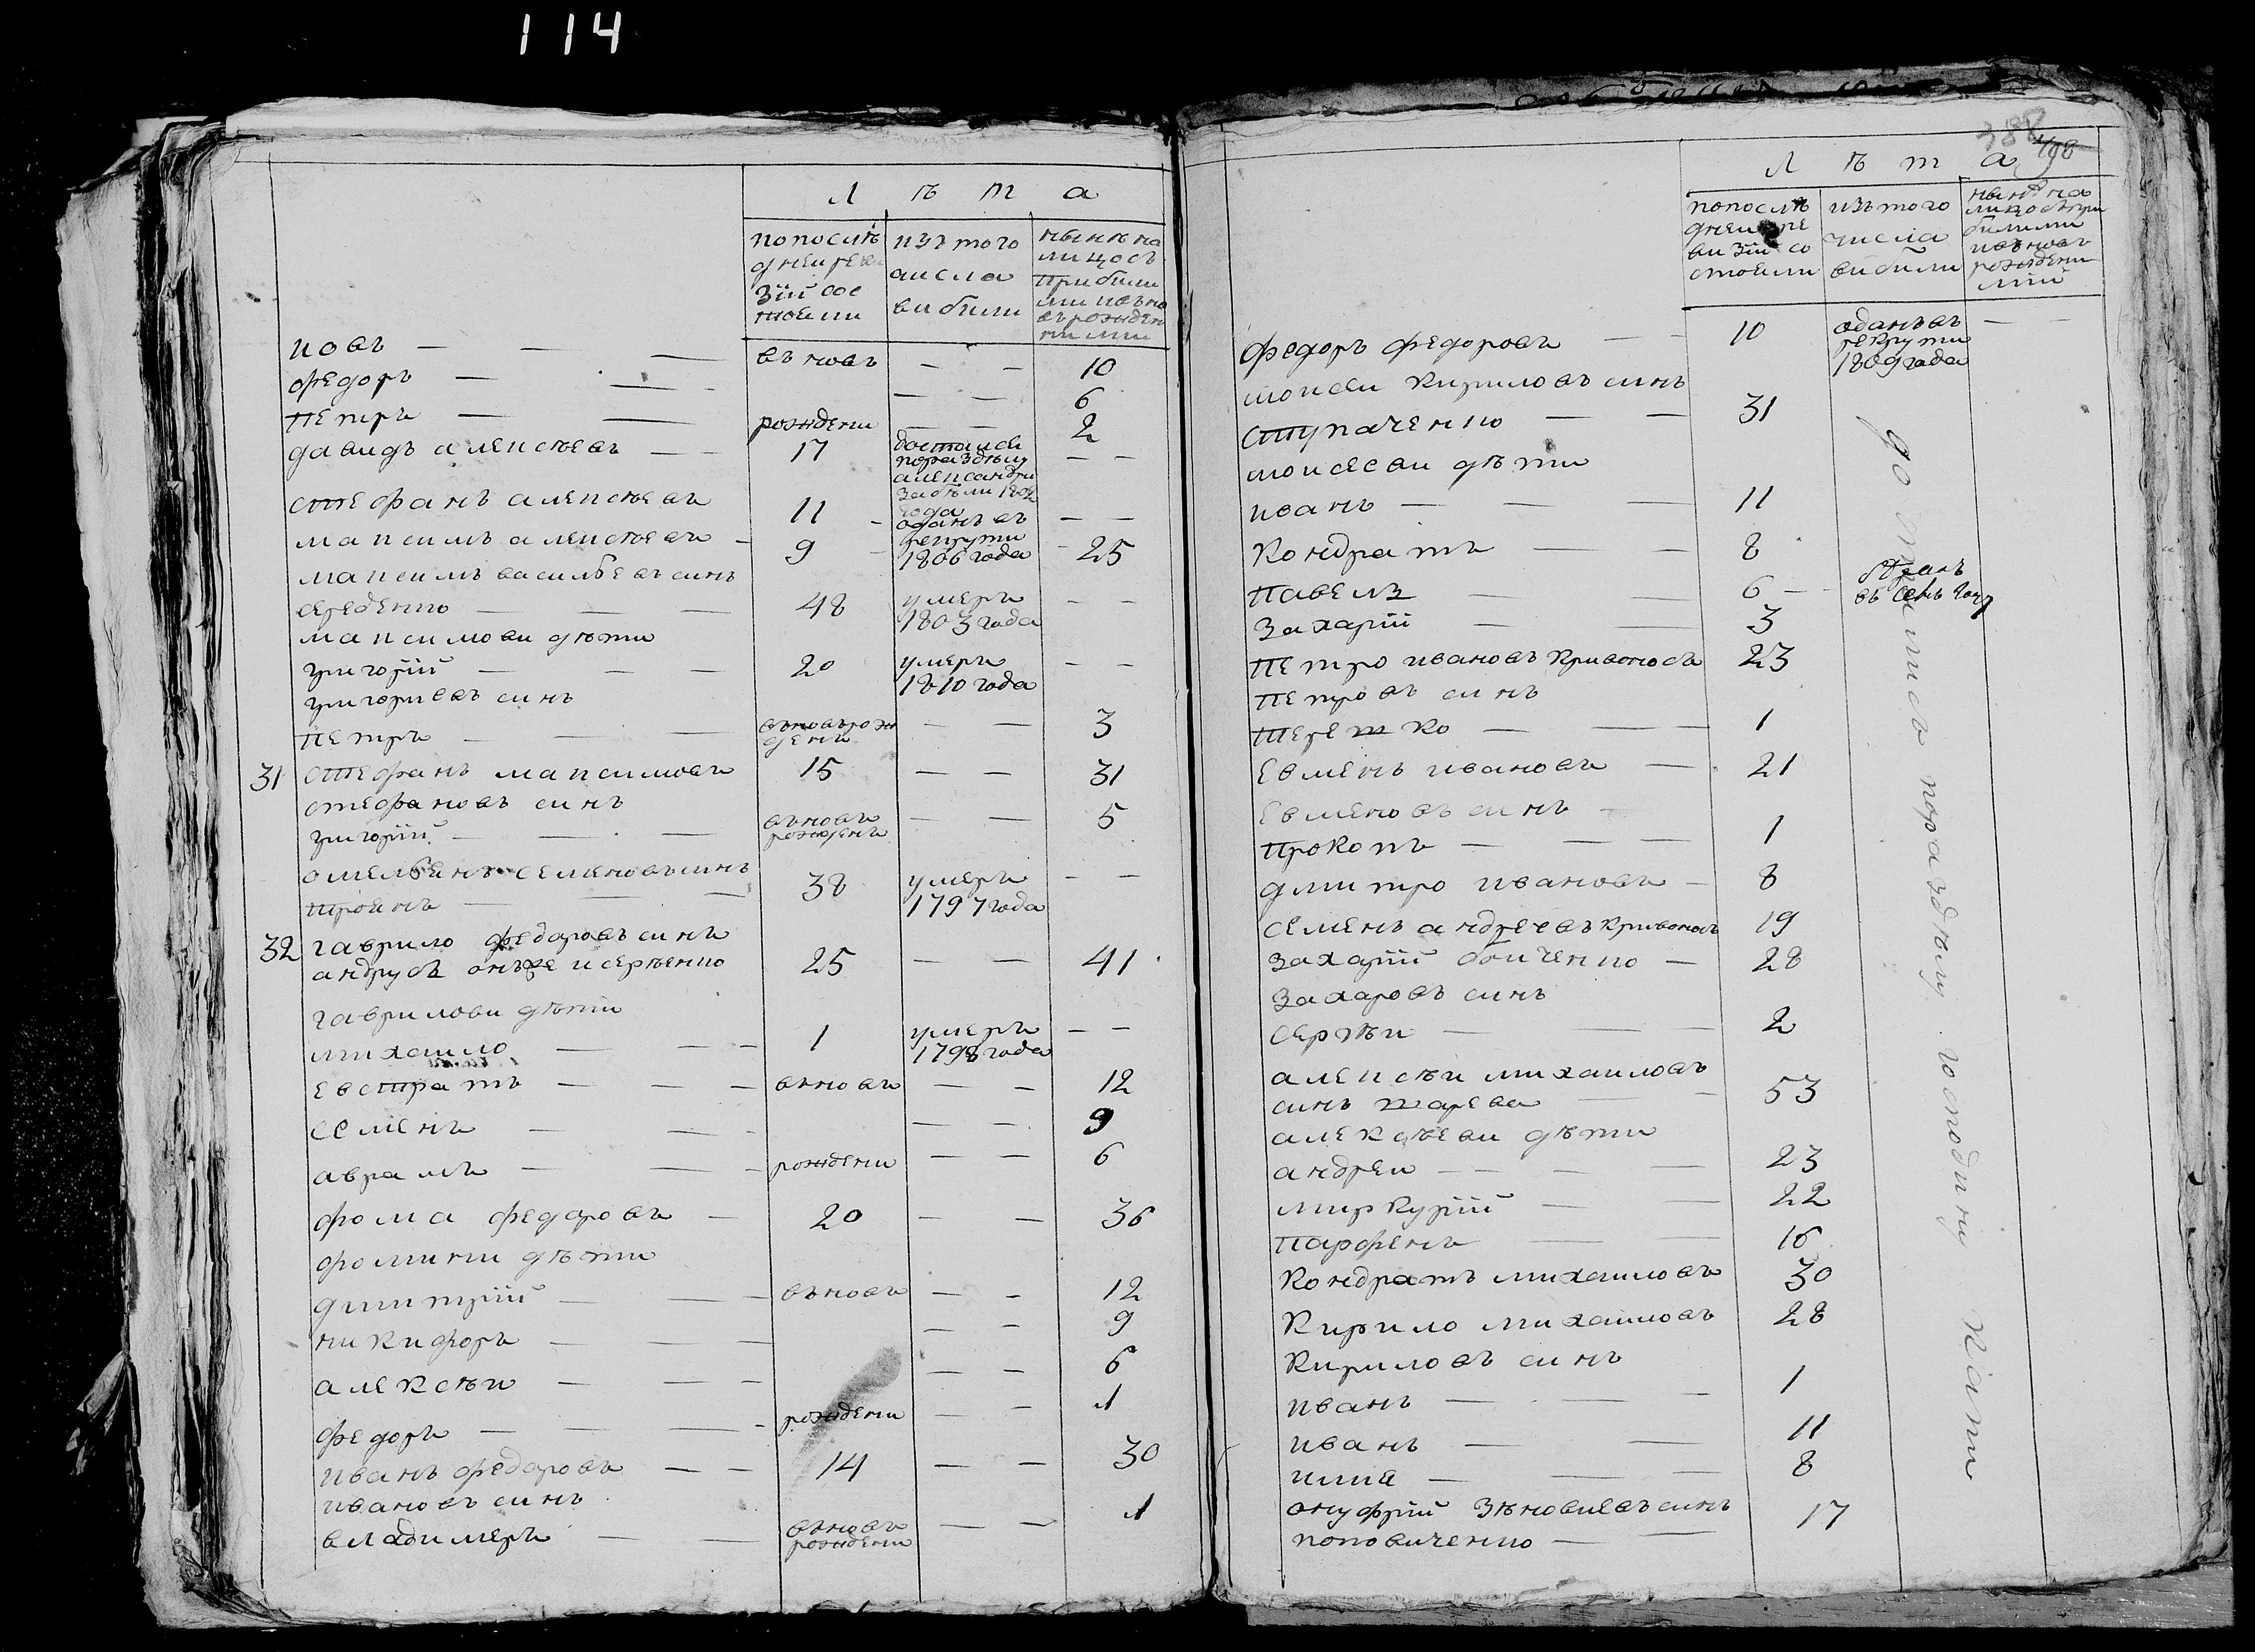 114
Л ѣ т а
попослѣ изъ того нынѣ на
днеи реви числа лицо съ
зіи сос вибили прибили
тояли ми и въно
въ рожден
ними
иовъ — — — въновь — — 10
федоръ — — — — 6
петръ — — рождени — — 2
давидъ алексѣевъ — — 17 достался — —
поразделу
александри
забѣли 1802
года
стефанъ алексѣевъ 11 — отданъ въ — —
рекрути
максимъ алексѣевъ — 9 — 1806 года — 25
максимъ васильевъ синъ
середенко — — — 48 умеръ — —
1803 года
максимови дѣти
григорій — — — 20 умеръ — —
1810 года
григориевъ синъ
петръ — — — въновърож — — 3
денъ
31 стефанъ максимовъ 15 — — 31
стефановъ синъ
григорій — — — въновь — — 5
рожденъ
омельянъ семеновъ синъ
троянъ — — — 38 умеръ — —
1797 года
32 гаврило федоровъ синъ
андрусъ онъже исергѣенко 25 — — 41
гаврилови дѣти
михаило — — — 1 умеръ — —
1798 года
евстратъ — — — вновь — — 12
семенъ — — — — 9
аврамъ — — — рождени — — 6
фома федоровъ — 20 — — 36
фомини дѣти
димитрій — — — въновь — — 12
никифоръ — — — — 9
алексѣи — — — — — 6
федоръ — — — рождени — — 1
иванъ федоровъ — — 14 — — 30
ивановъ синъ
владимеръ — — вновь — — 1
рождени
388
408
Л ѣ т а
попослѣ изъ того нынѣ на
днеи ре числа лицо съпри
визіи со вибили билими
стояли ивъновь
рождени
мии
федоръ федоровъ — — 10 оданъ въ — —
рекрути
1809 года
моисеи кириловъ синъ
ступаченко — — 31
моисееви дѣти
иванъ — — — 11
кондратъ — — 8
павелъ — — 6 —
захарій — — 3
петро ивановъ кривоносъ 23
петровъ синъ
терешко — — 1
евменъ ивановъ — 21
евменовъ синъ —
прокопъ — — — 1
дмитро ивановъ — 8
семенъ андреевъ кривоносъ 19
захарій боиченко — 28
захаровъ синъ
сергѣи — — — 2
алексѣи михаиловъ
синъ — — 53
алексѣеви дѣти
андреи — — — 23
миркурій — — 22
парфенъ — — 16
кондратъ михаиловъ 30
кирило михаиловъ 28
кириловъ синъ
иванъ — — — 1
иванъ — — 11
илия — — — 8
онуфрій зѣновиевъ синъ
поповиченко — — 17
поразделу господину